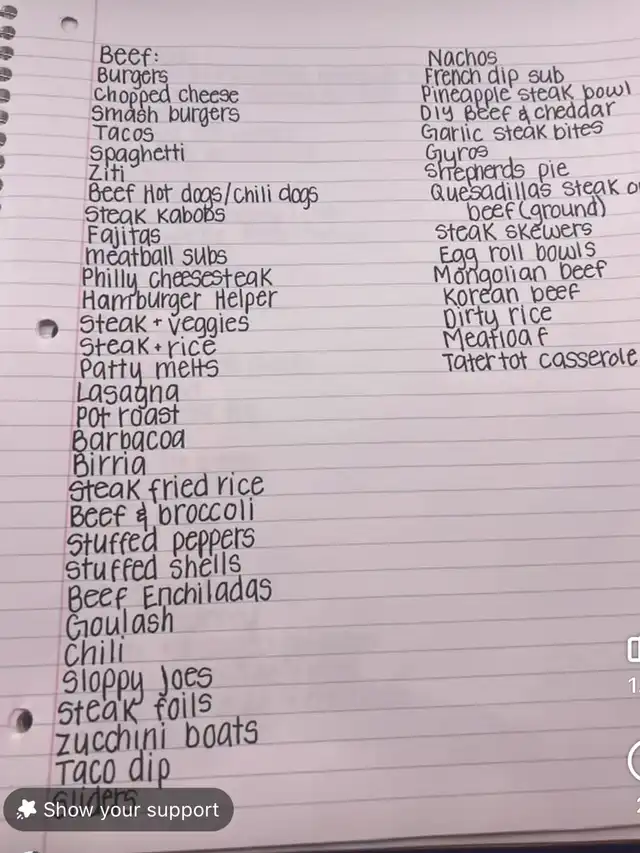 Beef:
Burgers
Chopped cheese
Smash burgers
Tacos
Spaghetti
Ziti
Beef Hot dogs/Chili dogs
Steak Kabobs
Fajitas
meatball subs
Philly cheesesteak
Hamburger Helper
Steak + veggies
Steak + rice
Patty melts
Lasagna
Pot roast
Barbacoa
Birria
Steak fried rice
Beef & broccoli
Stuffed peppers
Stuffed shells
Beef Enchiladas
Goulash
Chili
Sloppy Joes
Steak foils
Zucchini boats
Taco dip
Sliders
Nachos
French dip sub
Pineapple steak bowl
DIY Beef & cheddar
Garlic steak bites
Gyros
Shepherds pie
Quesadillas steak or
beef (ground)
Steak skewers
Egg roll bowls
Mongolian beef
Korean beef
Dirty rice
Meatloaf
Tater tot casserole
Show your support